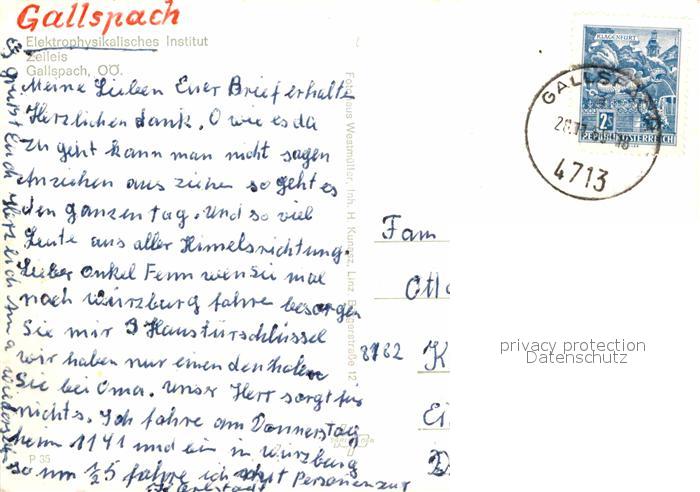 Gallspach
Elektrophysikalisches Institut
Zeileis
Gallspach, OÖ.
Meine Lieben Euer Brief erhalte
Herzlichen dank. O wie es da
zu geht kann man nicht sagen
Anziehen aus ziehen so geht es
den ganzen tag. Und so viel
Leute aus aller Himelsrichtung.
Lieber onkel wen Sie mal
nach Würzburg fahre besorgen
Sie mir 3 Haustürschlüssel
wir haben nur einen den holen
Sie bei Oma. Unser Herr sorgt für
nichts. Ich fahre am Donnerstag
heim 1141 und bin in würzburg
so um ½5 fahre ich mit Personenzug
Es grüßt Euch Herzlich
Fotohaus Westmüller, Inh. H. Linz, 12
P 35
KLAGENFURT
2S
REPUBLIK ÖSTERREICH
GALLSPACH
4713
Fam
Otto
8782 K
Ei
D
privacy protection
Datenschutz